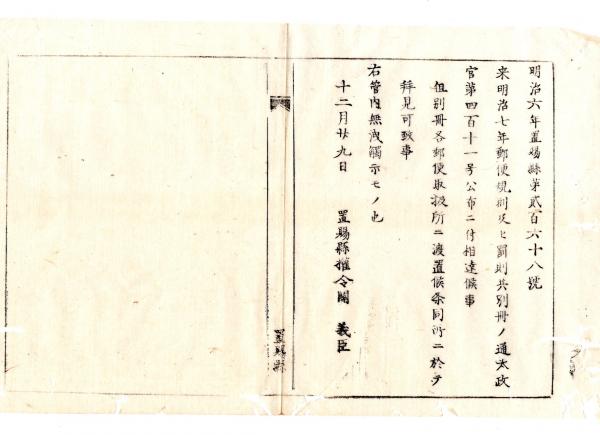 明治六年置賜縣第貳百六十八號
来明治七年郵便規則及ヒ罰則共別冊ノ通太政
官第四百十一号公布ニ付相達候事
但別冊各郵便取扱所ニ渡置候条同所ニ於テ
拝見可致事
右管内無洩觸示モノ也
十二月廿九日
置賜縣權令關 義臣
置賜縣